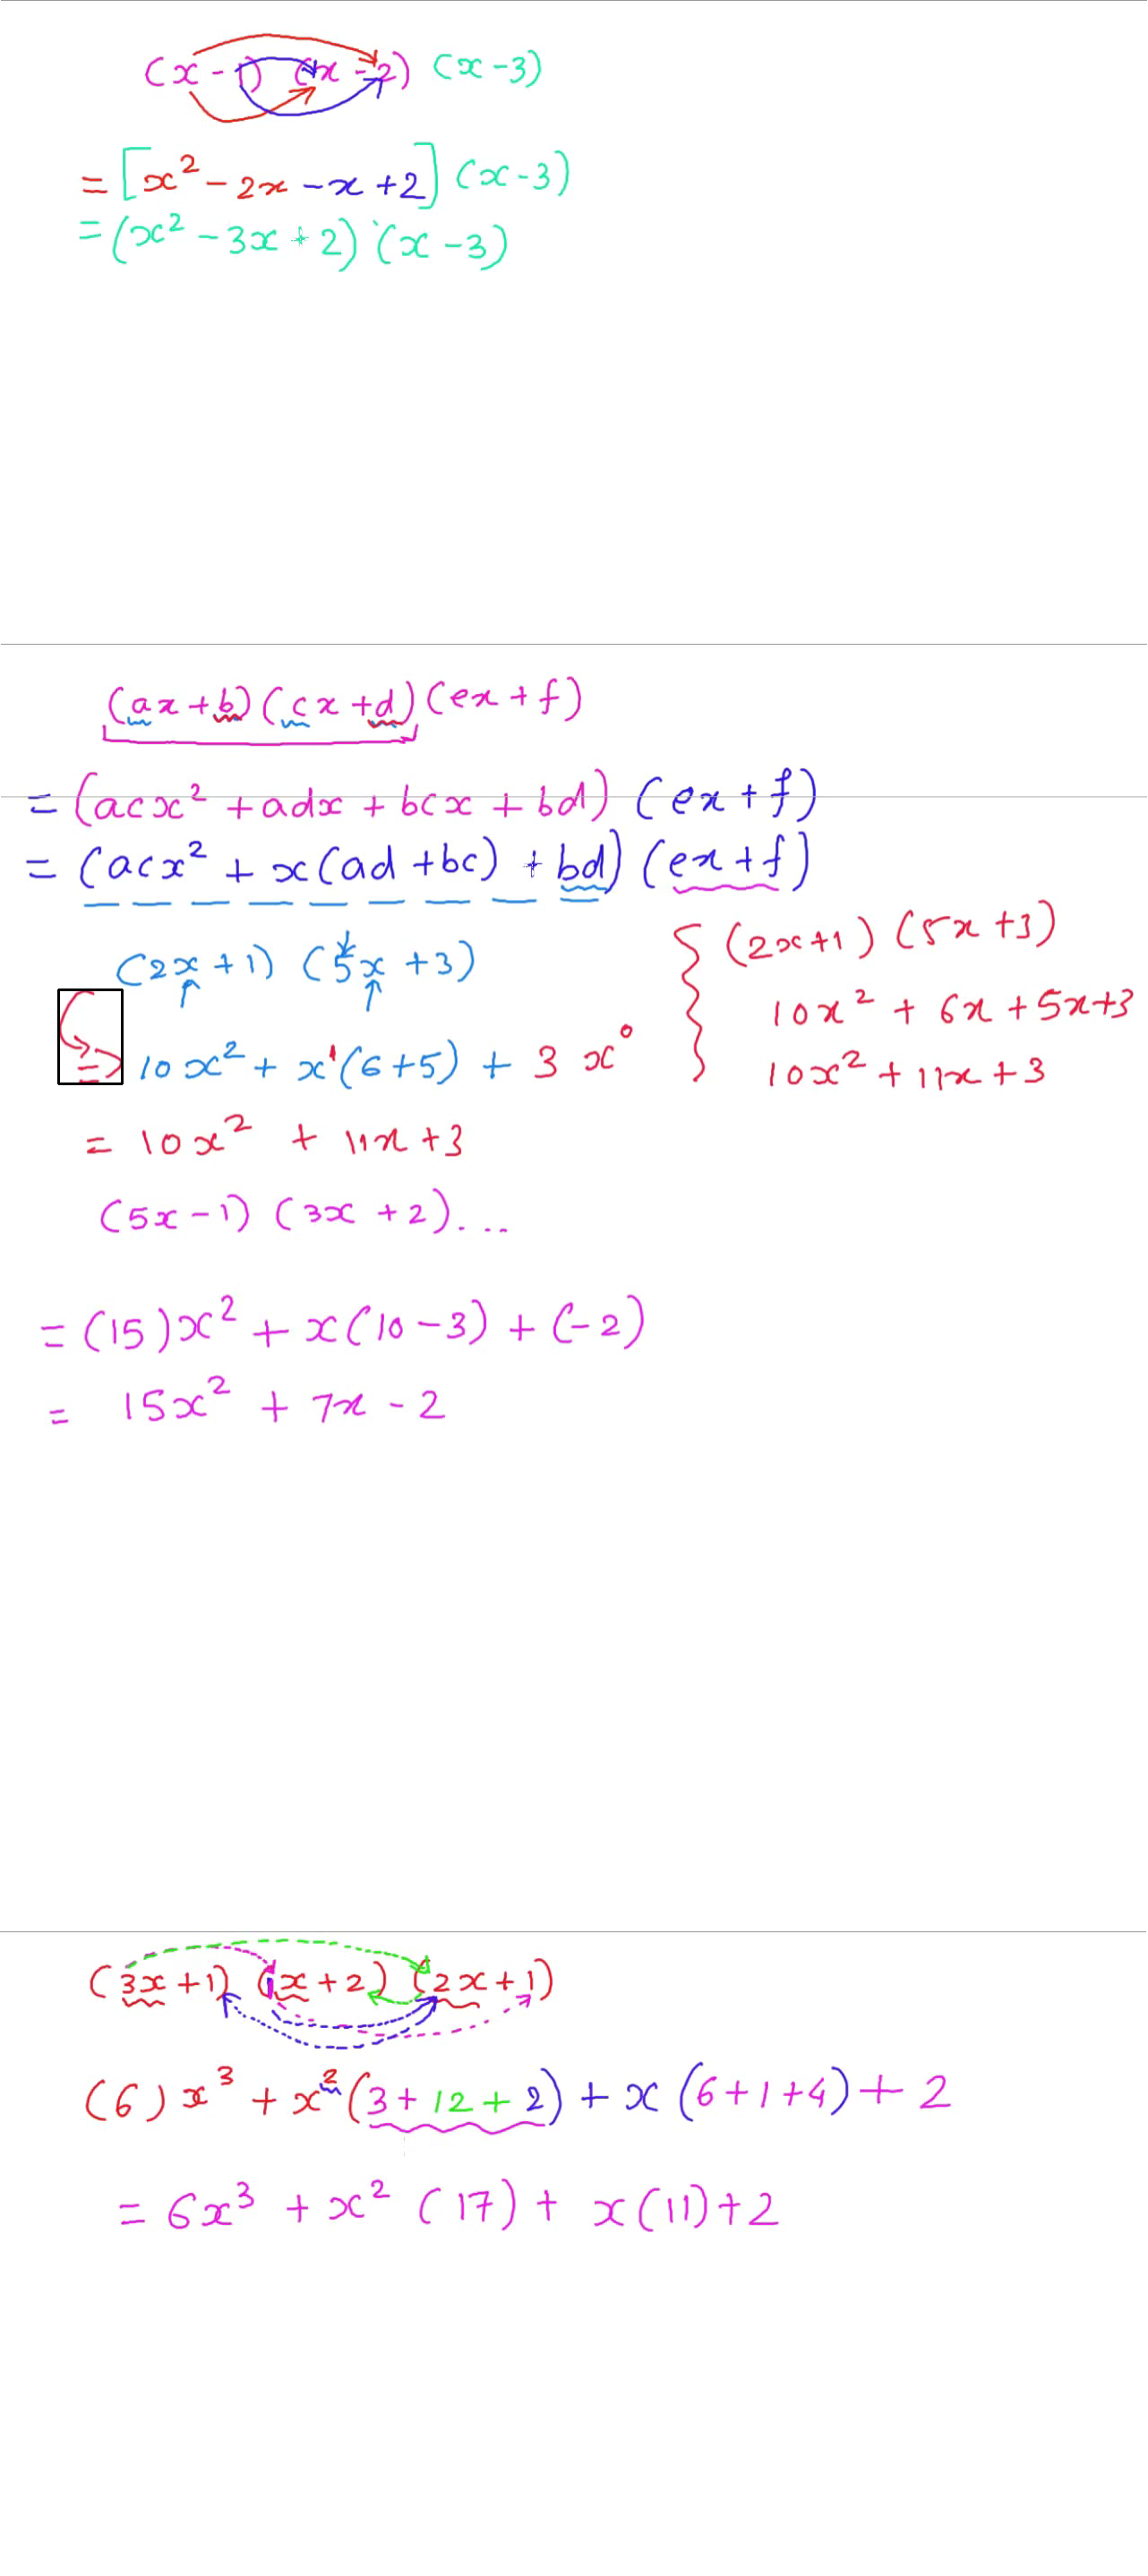 (x - 1) (x - 2) (x - 3)
= [x² - 2x - x + 2] (x - 3)
= (x² - 3x + 2) (x - 3)
(ax + b) (cx + d) (ex + f)
= (acx² + adx + bcx + bd) (ex + f)
= (acx² + x(ad + bc) + bd) (ex + f)
(2x + 1) (5x + 3)
10x² + x¹(6 + 5) + 3x⁰
= 10x² + 11x + 3
{ (2x + 1) (5x + 3)
10x² + 6x + 5x + 3
10x² + 11x + 3
(5x - 1) (3x + 2)...
= (15)x² + x(10 - 3) + (-2)
= 15x² + 7x - 2
(3x + 1) (1x + 2) (2x + 1)
(6)x³ + x²(3 + 12 + 2) + x(6 + 1 + 4) + 2
= 6x³ + x²(17) + x(11) + 2